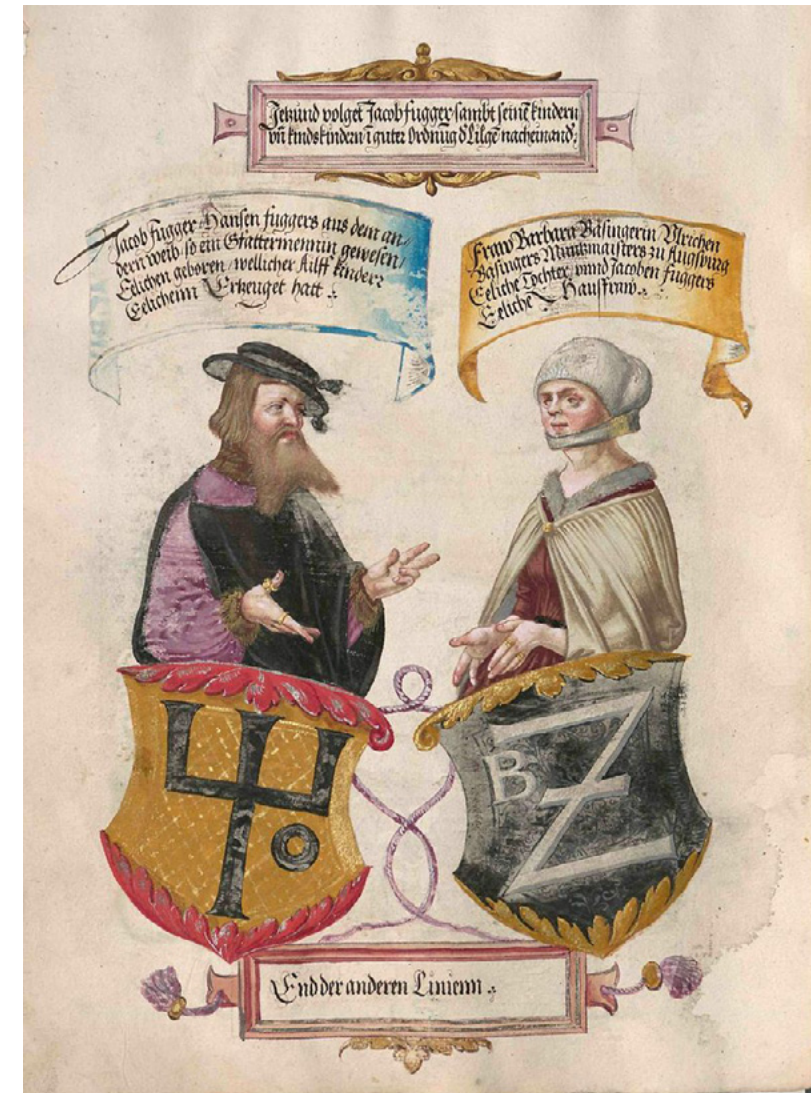 Jetzund volget Jacob fugger sambt seinē kindern
vñ kindskindern ī guter Ordnūg d Lilgē nacheinand;
Jacob fugger Hansen fuggers aus dem an/
dern weib, so ein Gfattermennin gewesen/
Eelichen geboren / wellicher Ailff kinder
Eelichenn Erzeuget hatt
Fraw Barbara Bäsingerin Ulrichen
Bäsingers Müntzmaisters zu Augspurg
Eeliche Tochter, vnnd Jacoben fuggers
Eeliche Hausfraw
B
End der anderen Linienn